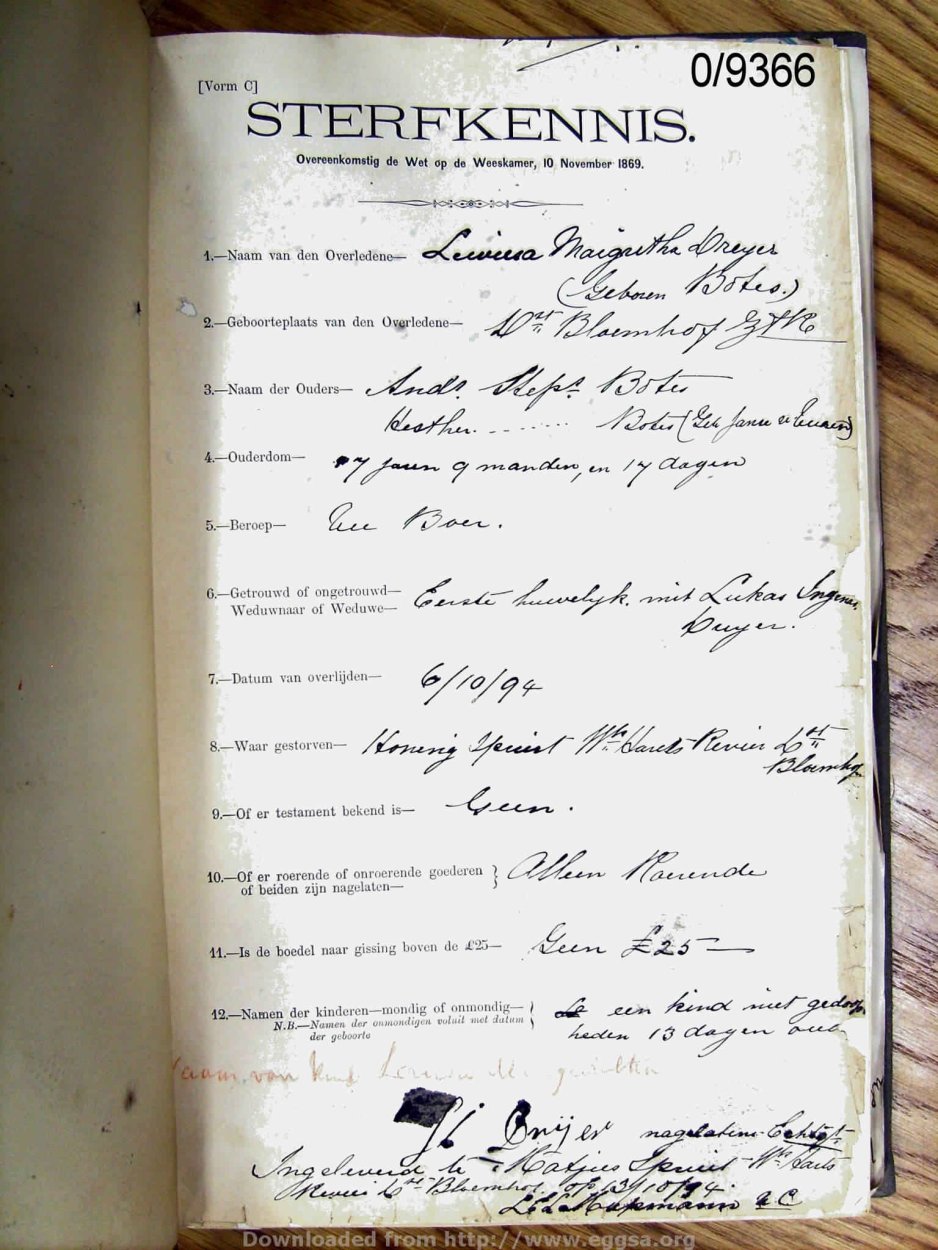 0/9366
[Vorm C]
STERFKENNIS.
Overeenkomstig de Wet op de Weeskamer, 10 November 1869.
1.—Naam van den Overledene— Maigritha Dreyer
(Geboren Botes.)
2.—Geboorteplaats van den Overledene— Dist Bloemhof ZAR
3.—Naam der Ouders— Andr. Steps. Botes
Hesther ........ Botes (Geb Janse
4.—Ouderdom— 17 jaren 9 maanden, en 17 dagen
5.—Beroep— Boer.
6.—Getrouwd of ongetrouwd— Eerste huwelyk. met Lukas
Weduwnaar of Weduwe—
7.—Datum van overlijden— 6/10/94
8.—Waar gestorven— Honing Spruit Wk Harts Revier Dist
Bloemhof
9.—Of er testament bekend is— Geen.
10.—Of er roerende of onroerende goederen } Alleen Roerende
of beiden zijn nagelaten—
11.—Is de boedel naar gissing boven de £25— Geen £25—
12.—Namen der kinderen—mondig of onmondig— } een kind niet gedoop
N.B.—Namen der onmondigen voluit met datum heden 13 dagen oud
der geboorte
Naam van kind
Dreijer nagelatene Echtgt
Ingeleverd te Spruit Wk Harts
Revier Dt Bloemhof op 13/10/94.
Downloaded from http://www.eggsa.org